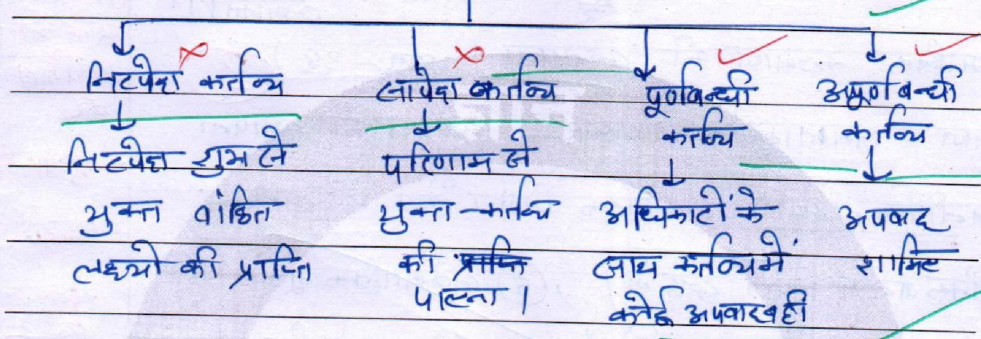 निरपेक्ष कर्तव्य
निरपेक्ष शुभ से
युक्त वांछित
लक्ष्यो की प्राप्ति
सापेक्ष कर्तव्य
परिणाम से
युक्त कर्तव्य
की प्राप्ति
पालना ।
पूर्णबन्धी
कर्तव्य
अधिकारों के
साथ कर्तव्य में
कोई अपवाद नहीं
अपूर्णबन्धी
कर्तव्य
अपवाद
शामिल